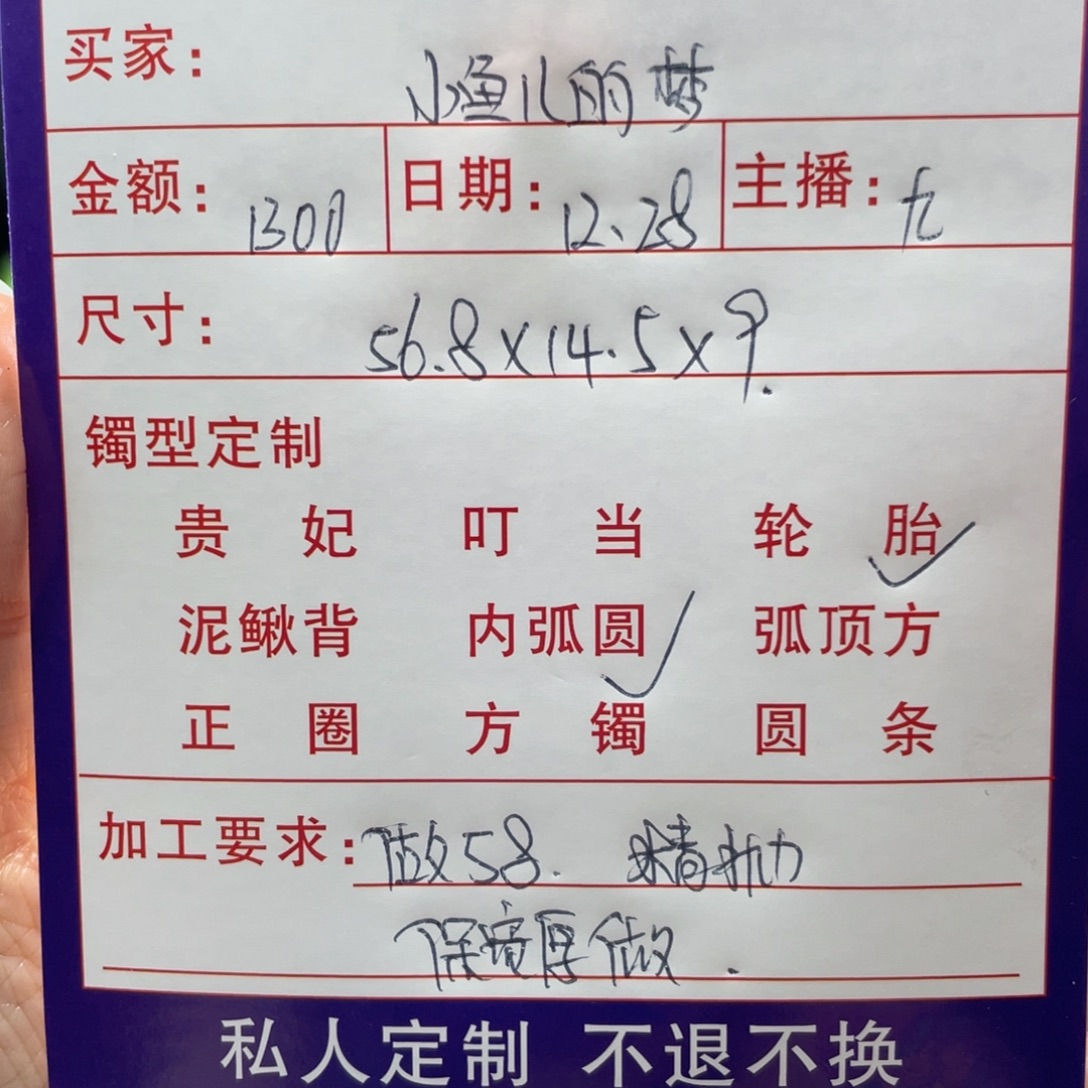 买家：小渔儿的梦
金额：1300 日期：12.28 主播：九
尺寸：56.8×14.5×9.
镯型定制
贵妃 叮当 轮胎✓
泥鳅背 内弧圆✓ 弧顶方
正圈 方镯 圆条
加工要求：做58. 精抛
保宽厚做.
私人定制 不退不换